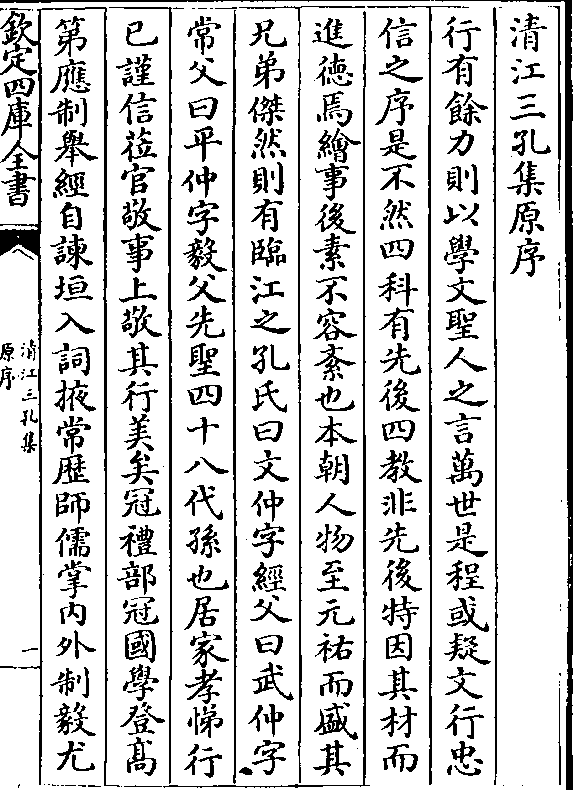 清江三孔集原序
行有餘力則以學文聖人之言萬世是程或疑文行忠
信之序是不然四科有先後四教非先後特因其材而
進德焉繪事後素不容紊也本朝人物至元祐而盛其
兄弟傑然則有臨江之孔氏曰文仲字經父曰武仲字
常父曰平仲字毅父先聖四十八代孫也居家孝悌行
已謹信莅官敬事上敬其行美矣冠禮部冠國學登髙
第應制舉經自諫垣入詞掖常歴師儒掌内外制毅尤
欽定四庫全書
清江三孔集
原序
一